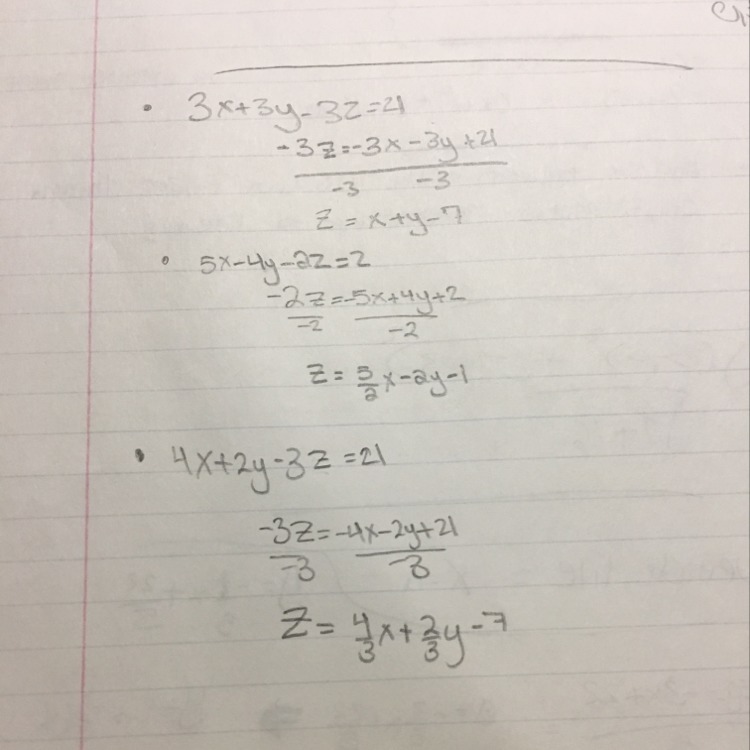 • 3x+3y-3z=21
-3z=-3x-3y+21
-3 -3
z=x+y-7
• 5x-4y-2z=2
-2z=-5x+4y+2
-2 -2
z=5/2x-2y-1
• 4x+2y-3z=21
-3z=-4x-2y+21
-3 -3
z=4/3x+2/3y-7